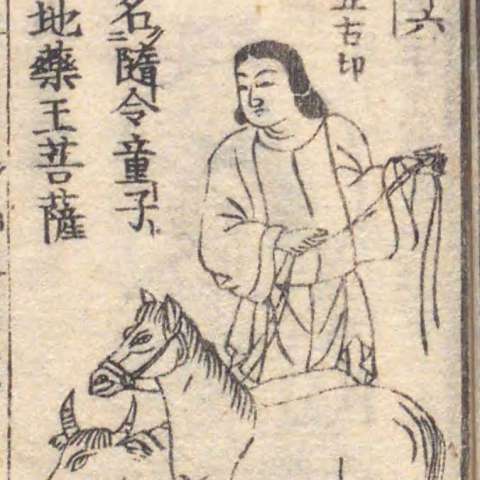 六
五古印
名隨令童子
地藥王菩薩